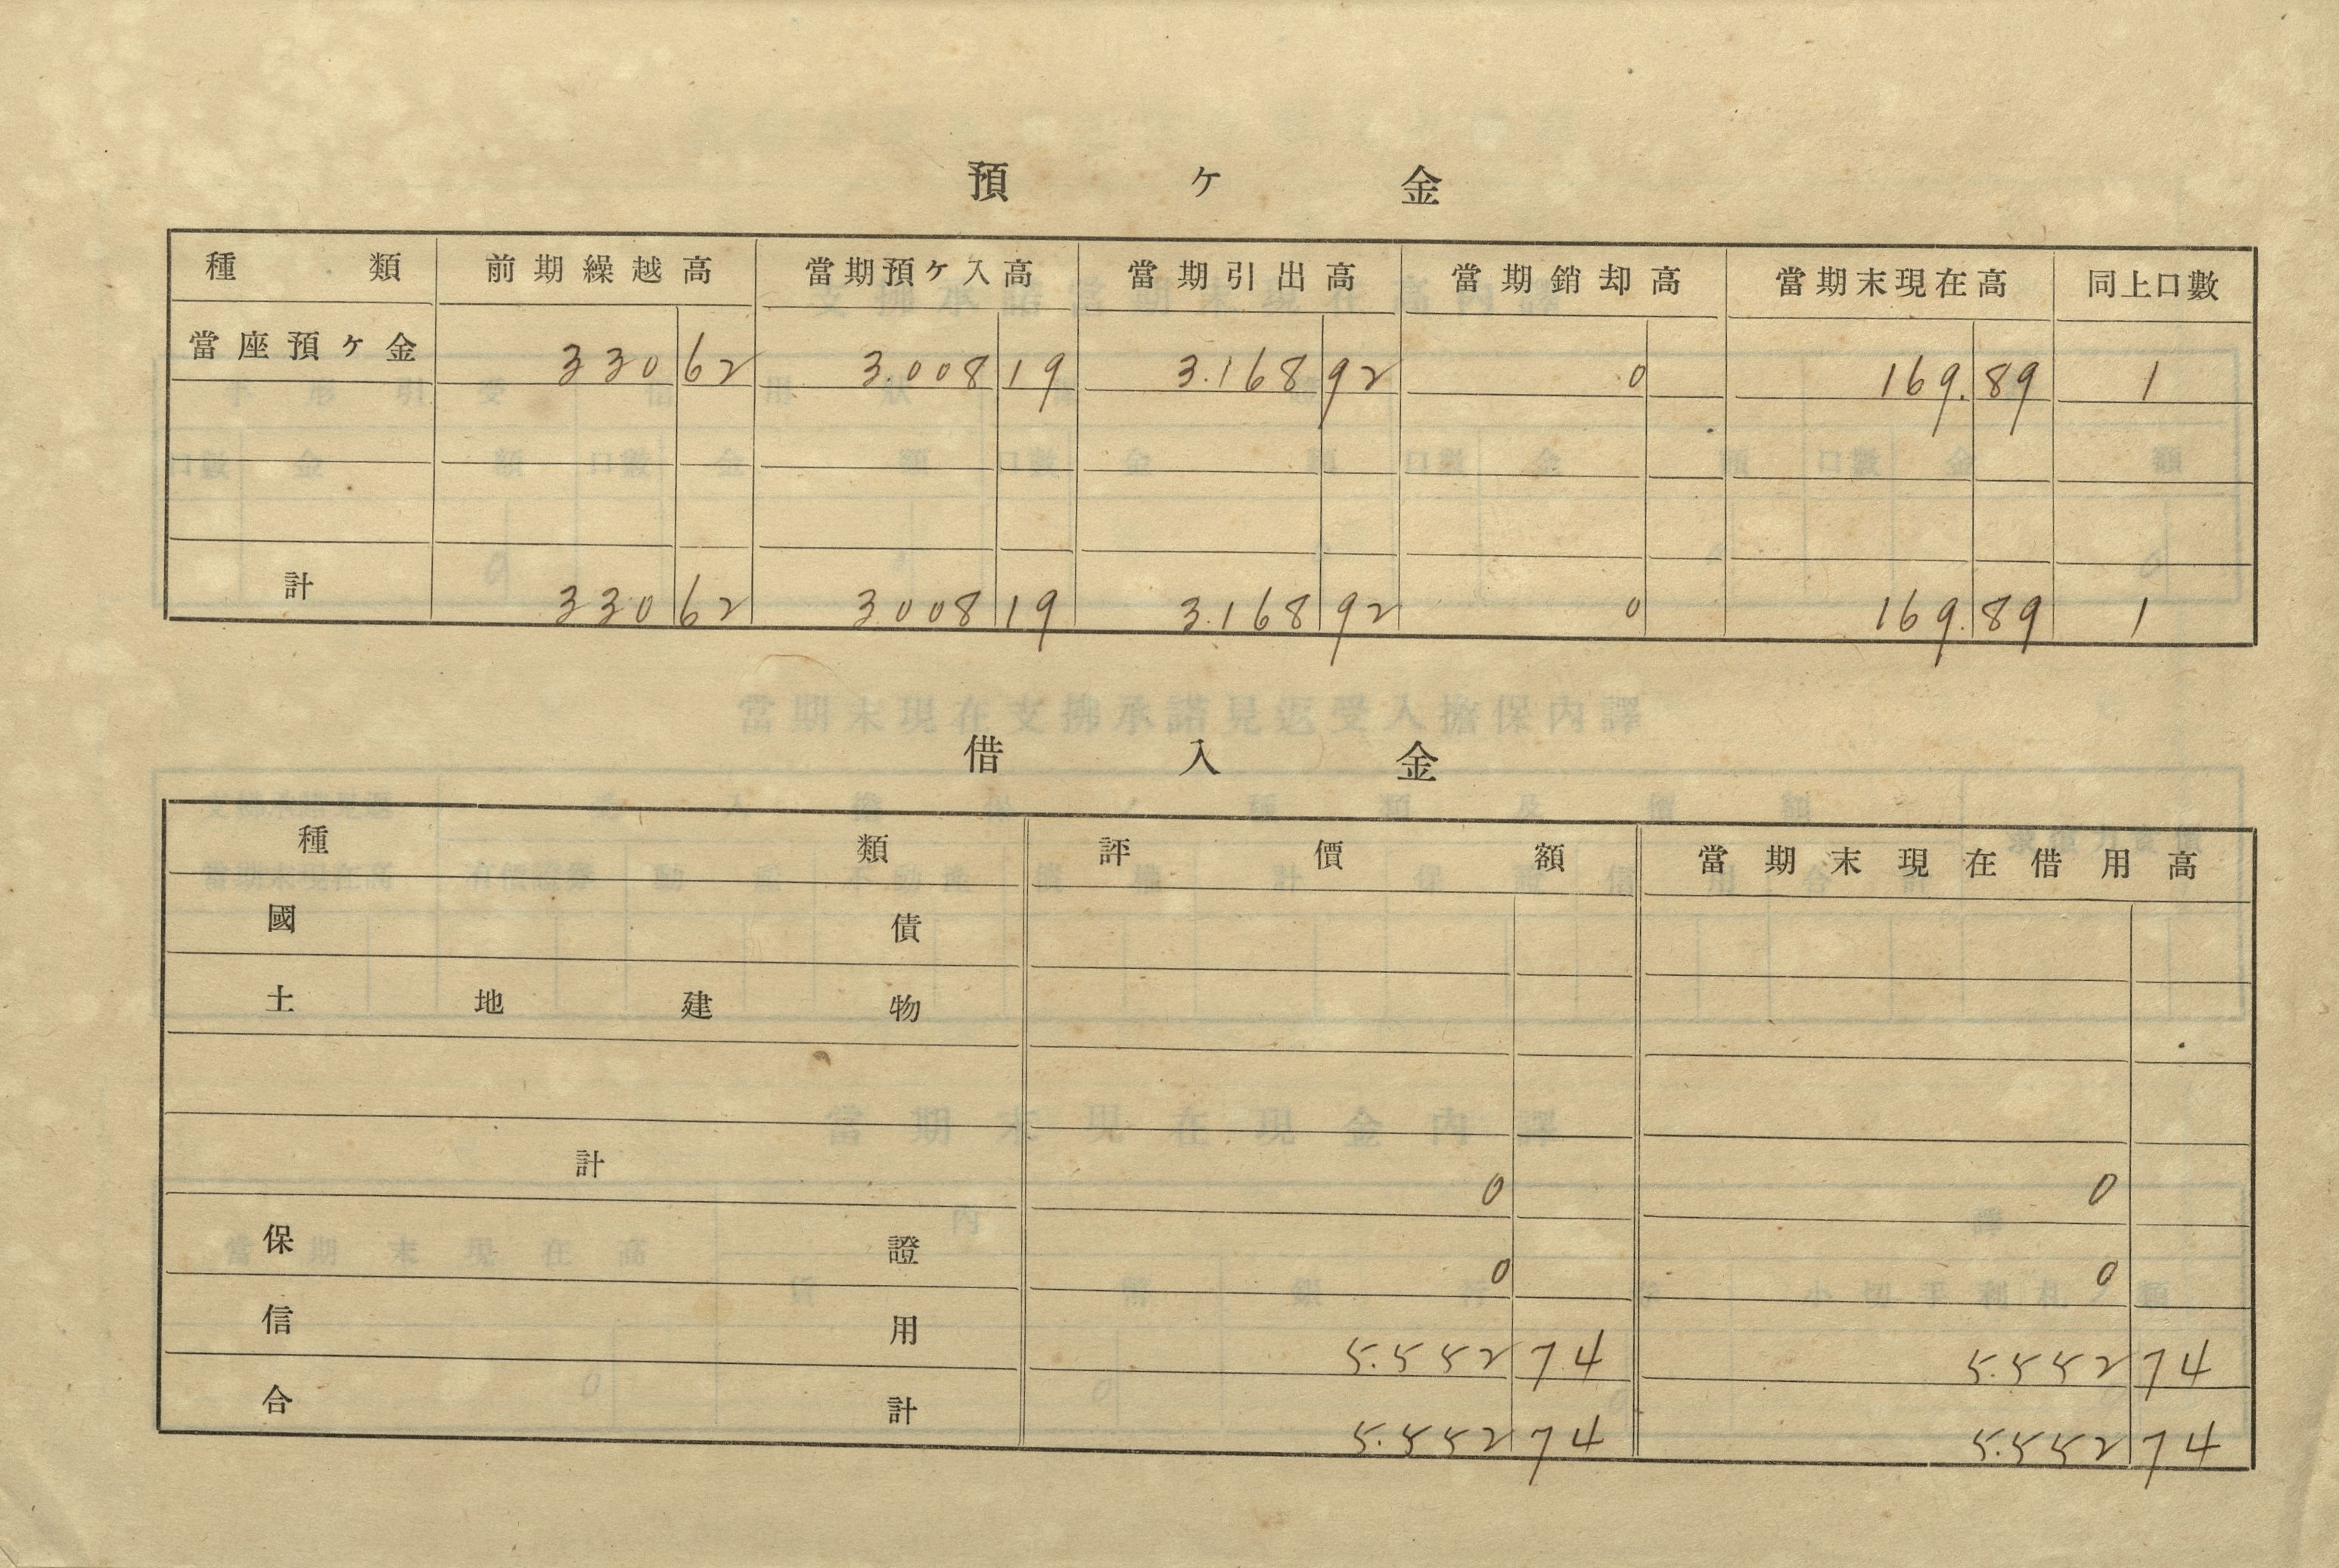 預ケ金
種類 前期繰越高 當期預ケ入高 當期引出高 當期銷却高 當期末現在高 同上口數
當座預ケ金 330 62 3.008 19 3.168 92 0 169.89 1
計 330 62 3008 19 3.168 92 0 169.89 1
借入金
種類 評價額 當期末現在借用高
國債
土地建物
計 0 0
保證 0 0
信用 5.552 74 5.552 74
合計 5.552 74 5.552 74